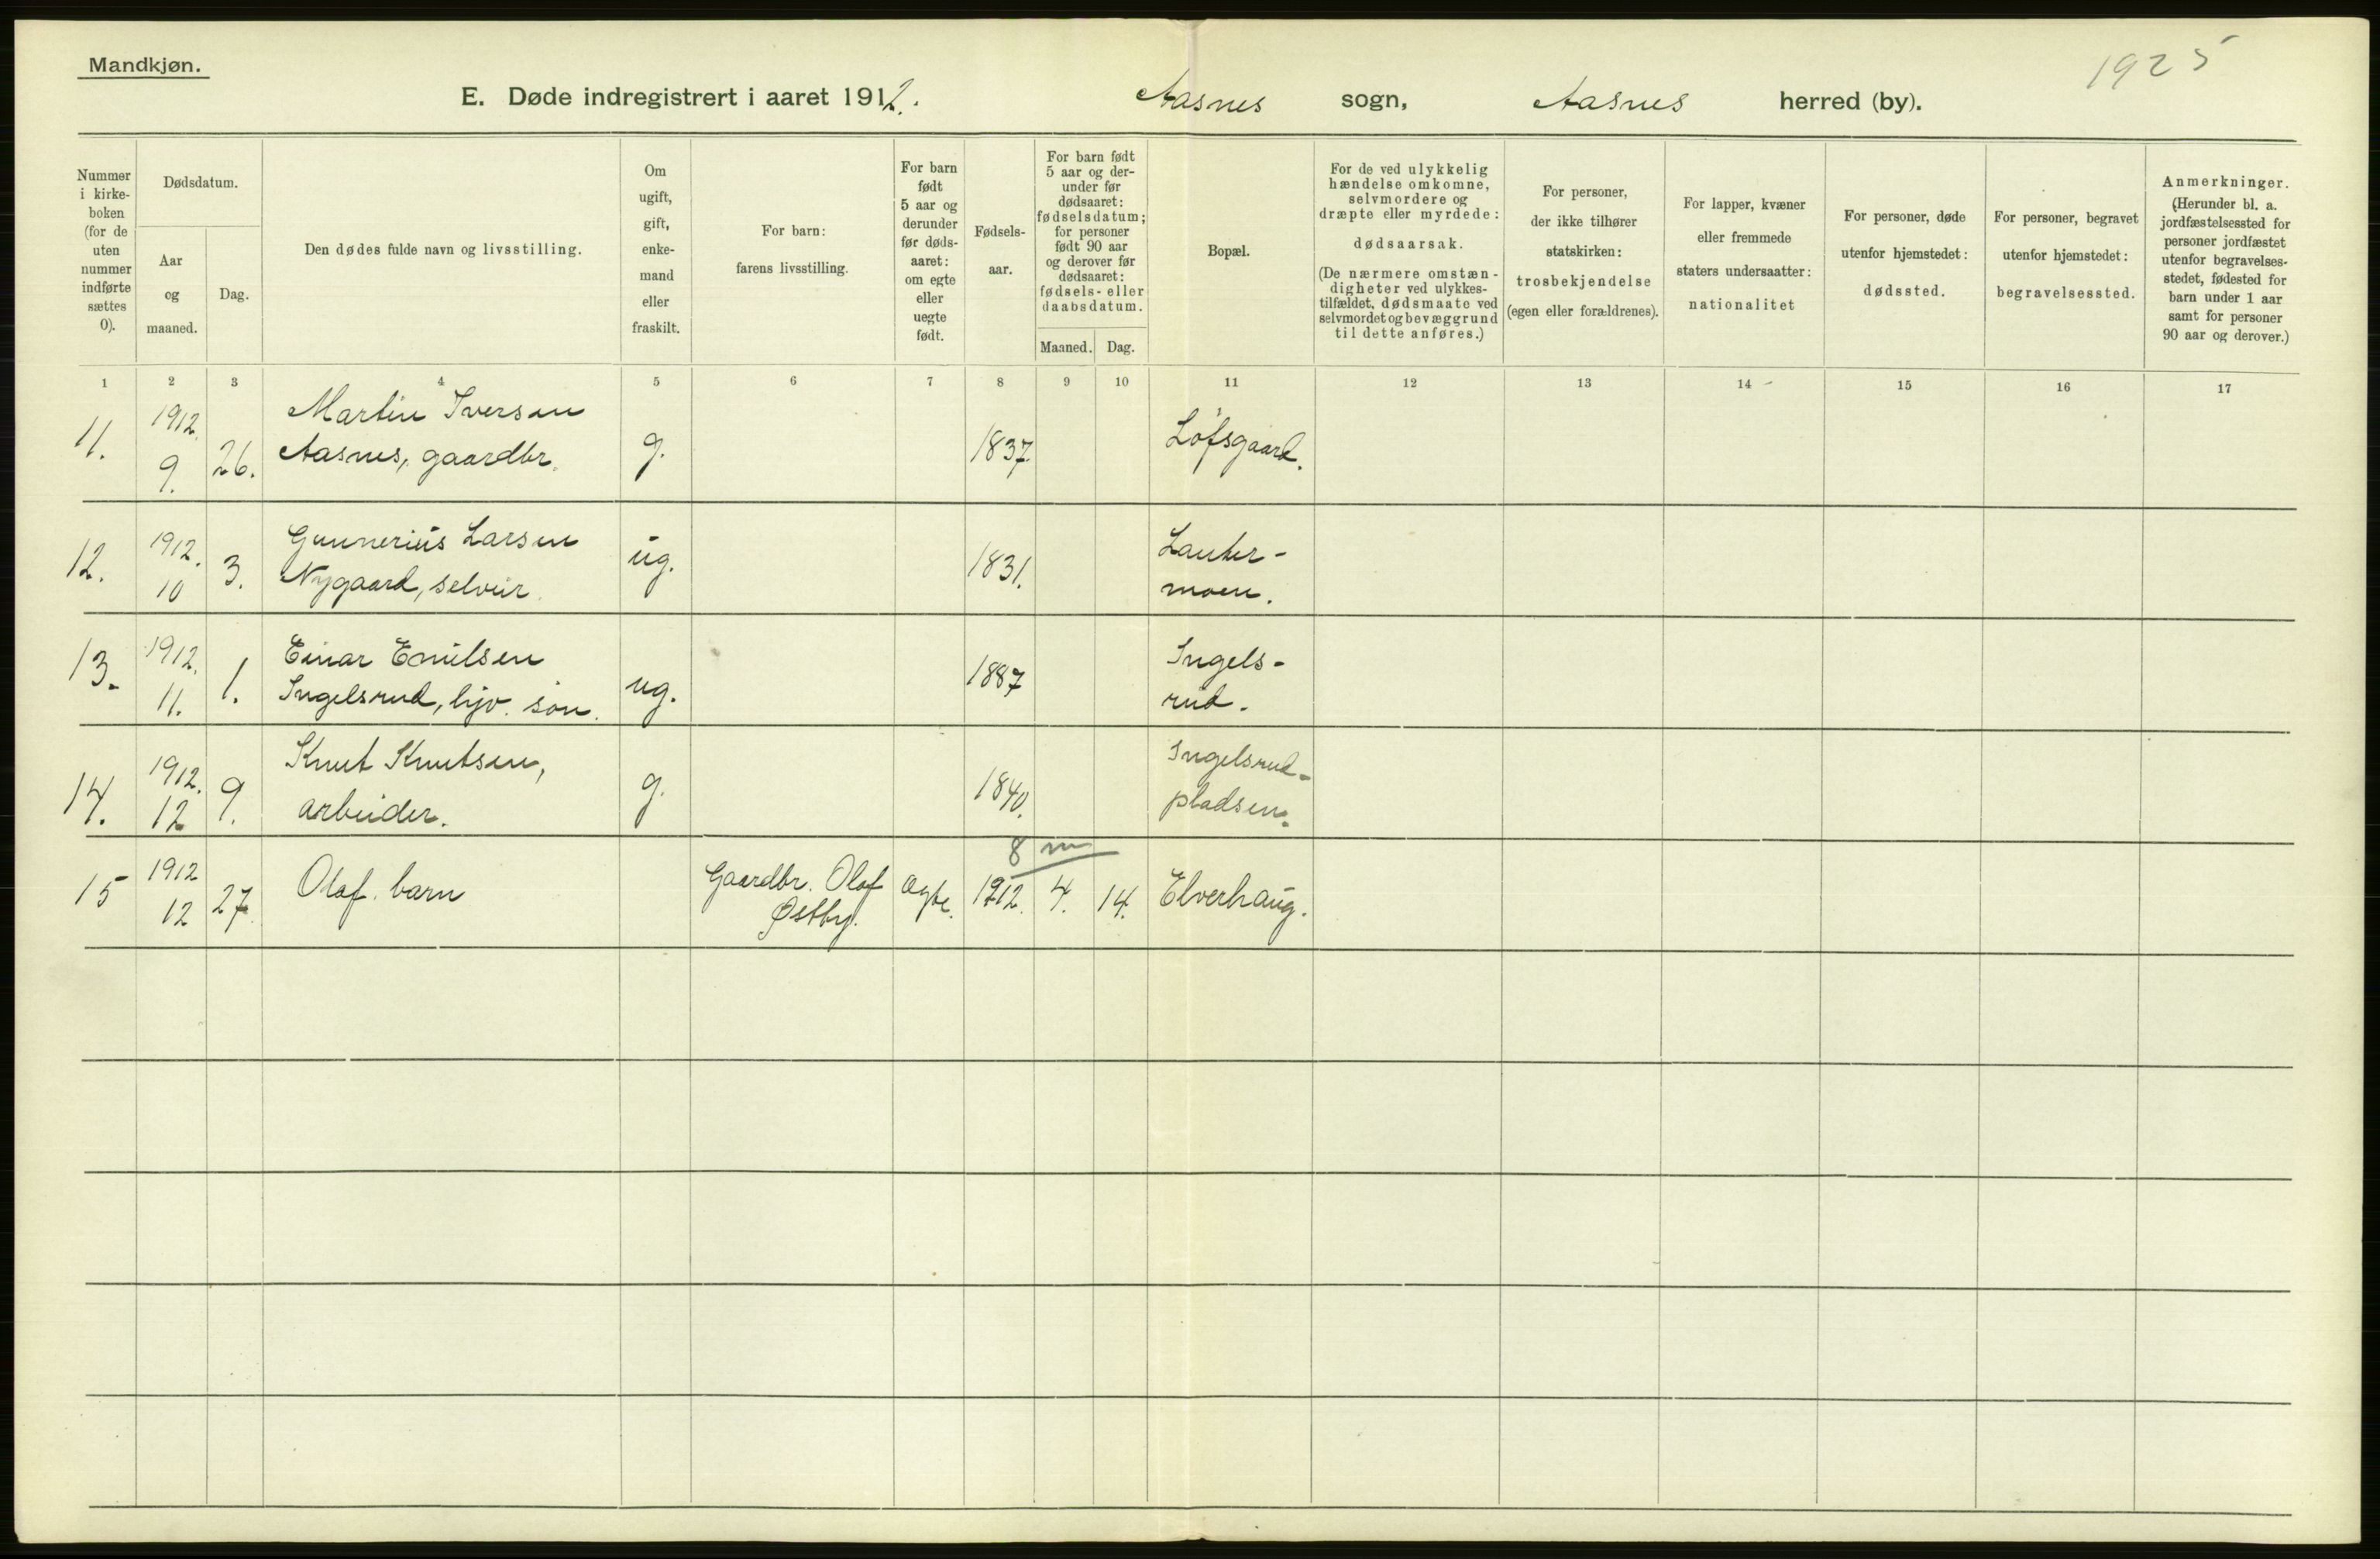 Mandkjøn.
1925
E. Døde indregistrert i aaret 1912. Aasnes sogn, Aasnes herred (by).
Nummer i kirke-boken (for de uten nummer indførte sættes 0).
Dødsdatum.
Aar og maaned.
Dag.
Den dødes fulde navn og livsstilling.
Om ugift, gift, enke-mand eller fraskilt.
For barn: farens livsstilling.
For barn født 5 aar og derunder før døds-aaret: om egte eller uegte født.
Fødsels-aar.
For barn født 5 aar og der-under før dødsaaret: fødselsdatum; for personer født 90 aar og derover før dødsaaret: fødsels- eller daabsdatum.
Maaned. Dag.
Bopæl.
For de ved ulykkelig hændelse omkomne, selvmordere og dræpte eller myrdede: dødsaarsak. (De nærmere omstæn-digheter ved ulykkes-tilfældet, dødsmaate ved selvmordet og bevæggrund til dette anføres.)
For personer, der ikke tilhører statskirken: trosbekjendelse (egen eller forældrenes).
For lapper, kvæner eller fremmede staters undersaatter: nationalitet
For personer, døde utenfor hjemstedet: dødssted.
For personer, begravet utenfor hjemstedet: begravelsessted.
Anmerkninger. (Herunder bl. a. jordfæstelsessted for personer jordfæstet utenfor begravelses-stedet, fødested for barn under 1 aar samt for personer 90 aar og derover.)
1 2 3 4 5 6 7 8 9 10 11 12 13 14 15 16 17
11. 1912. 9. 26. Martin Iversen Aasnes, gaardbr. g. 1837. Løfsgaard.
12. 1912. 10 3. Gunnerius Larsen Nygaard, selveier. ug. 1831. Lauter-moen.
13. 1912. 11. 1. Einar Emilsen Ingelsrud, hjv. søn. ug. 1887 Ingels-rud.
14. 1912. 12 9. Knut Knutsen, arbeider. g. 1840. Ingelsrud-pladsen.
8 m
15 1912 12 27. Olaf. barn Gaardbr. Olaf Østby. ægte. 1912. 4. 14. Elverhaug.